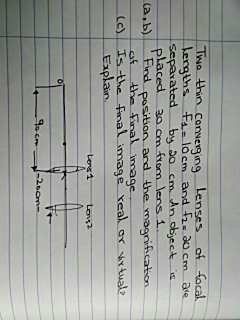 Two thin converging lenses of focal
lengths f1=10cm and f2=20cm are
separated by 20 cm. An object is
placed 30 cm from lens 1.
(a,b) Find position and the magnification
of the final image.
(c) Is the final image real or virtual?
Explain
Lens1
Lens2
O
20cm